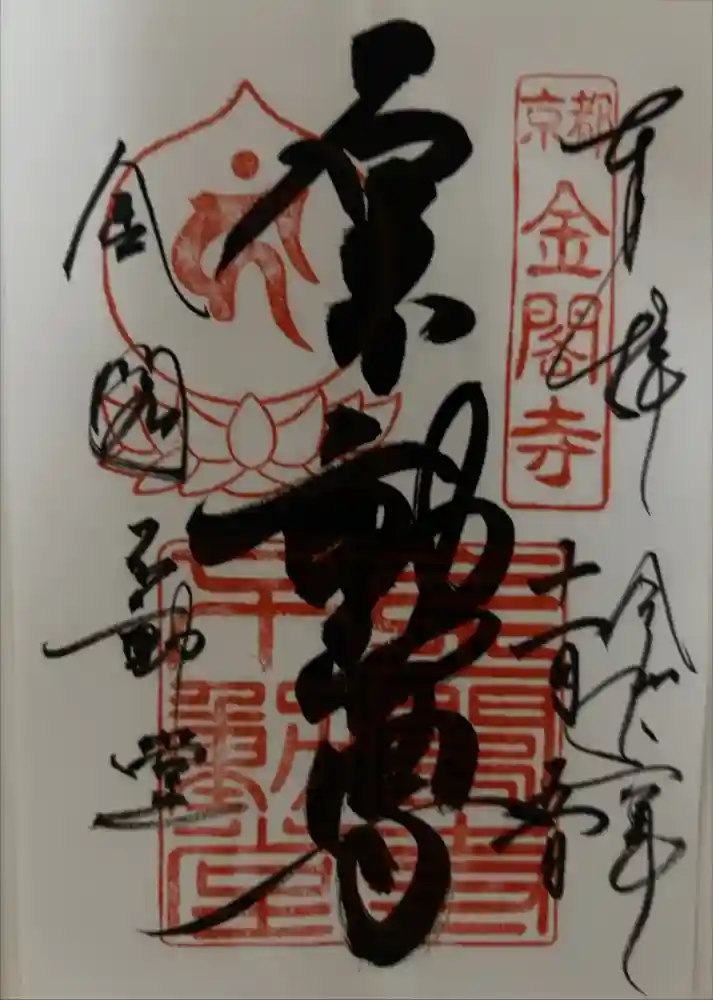 奉拝
令和二年
十一月五日
京都
金閣寺
金閣
不動堂
金閣寺
不動堂